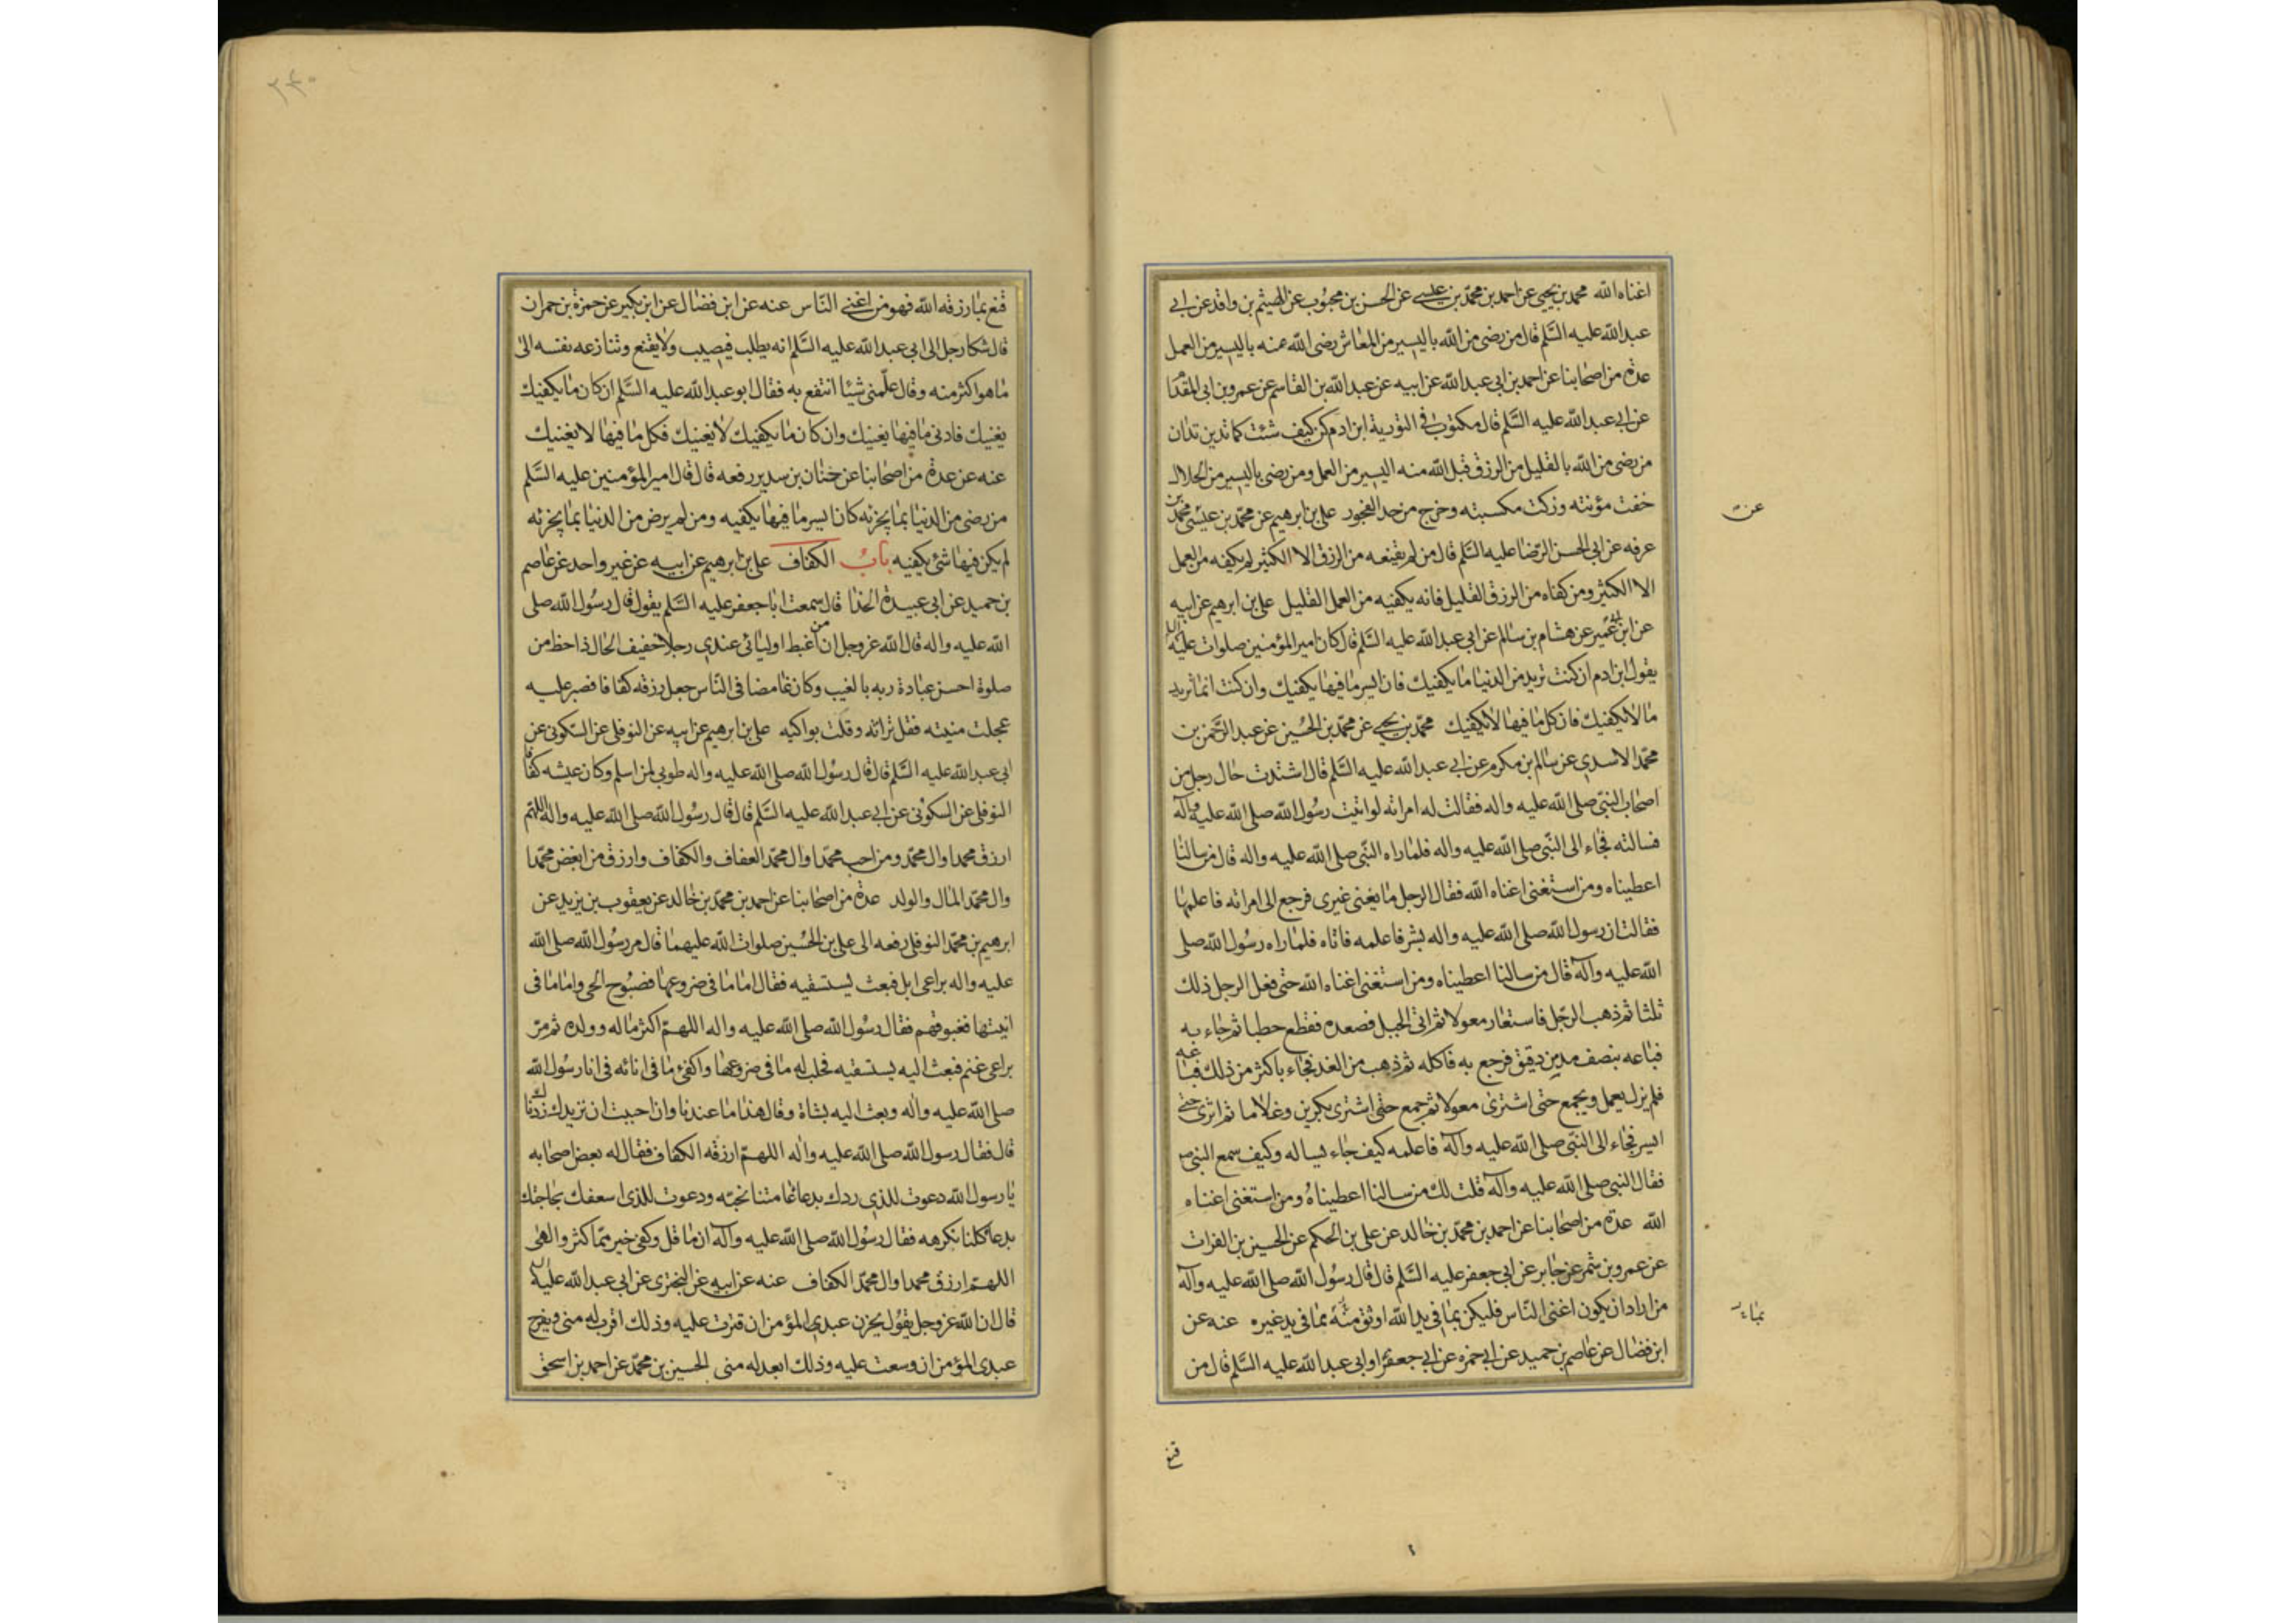 اغناه الله محمد بن يحيى عن احمد بن محمد بن عيسى عن الحسن بن محبوب عن الهيثم بن واقد عن ابي
عبد الله عليه السَّلم قال من رضى من الله باليسير من المعاش رضى الله عنه باليسير من العمل
عدة من اصحابنا عن احمد بن ابى عبد الله عن ابيه عن عبد الله بن القاسم عن عمرو بن ابى المقدام
عن ابي عبد الله عليه السَّلم قال مكتوب في التورية ابن ادم كن كيف شئت كما تدين تدان
من رضى من الله بالقليل من الرزق قبل الله منه اليسير من العمل ومن رضى باليسير من الحلال
خفت مؤنته وزكت مكسبته وخرج من حد الفجور على بن ابرهيم عن محمد بن عيسى محمد بن
عرفه عن ابى الحسن الرضا عليه السَّلم قال من لم يقنعه من الرزق الا الكثير لم يكفه من العمل
الا الكثير ومن كفاه من الرزق القليل فانه يكفيه من العمل القليل على بن ابرهيم عن ابيه
عن ابن ابى عمير عن هشام بن سالم عن ابى عبد الله عليه السَّلم قال كان امير المؤمنين صلوات الله عليه
يقول ابن ادم ان كنت تريد من الدنيا ما يكفيك فان ايسر ما فيها يكفيك وان كنت انما تريد
ما لا يكفيك فان كل ما فيها لا يكفيك محمد بن يحيى عن محمد بن الحسين عن عبد الرحمن بن
محمد الاسدى عن سالم بن مكرم عن ابى عبد الله عليه السَّلم قال اشتدت حال رجل من
اصحاب النبى صلى الله عليه واله فقالت له امراته لو اتيت رسول الله صلى الله عليه وآله
فسالته فجاء الى النبى صلى الله عليه واله فلما راه النبى صلى الله عليه واله قال من سالنا
اعطيناه ومن استغنى اغناه الله فقال الرجل ما يعنى غيرى فرجع الى امراته فاعلمها
فقالت ان رسول الله صلى الله عليه واله بشر فاعلمه فاتاه فلما راه رسول الله صلى
الله عليه وآله قال من سالنا اعطيناه ومن استغنى اغناه الله حتى فعل الرجل ذلك
ثلثا ثم ذهب الرجل فاستعار معولا ثم اتى الجبل فصعده فقطع حطبا ثم جاء به
فباعه بنصف مد من دقيق فرجع به فاكله ثم ذهب من الغد فجاء باكثر من ذلك فباعه
فلم يزل يعمل ويجمع حتى اشترى معولا ثم جمع حتى اشترى بكرين وغلاما ثم اثرى حتى
ايسر فجاء الى النبى صلى الله عليه وآله فاعلمه كيف جاء يساله وكيف سمع النبى ص
فقال النبى صلى الله عليه وآله قلت لك من سالنا اعطيناه ومن استغنى اغناه
الله عدة من اصحابنا عن احمد بن محمد بن خالد عن على بن الحكم عن الحسين بن الفرات
عن عمرو بن شمر عن جابر عن ابى جعفر عليه السَّلم قال قال رسول الله صلى الله عليه وآله
من اراد ان يكون اغنى الناس فليكن بما فى يد الله اوثق منه بما فى يد غيره عنه عن
ابن فضال عن عاصم بن حميد عن ابى حمزه عن ابى جعفر او ابى عبد الله عليه السَّلم قال من
قنع
قنع بما رزقه الله فهو من اغنى النّاس عنه عن ابن فضال عن ابن بكير عن حمزة بن حمران
قال شكا رجل الى ابى عبد الله عليه السَّلم انه يطلب فيصيب ولا يقنع وتنازعه نفسه الى
ما هو اكثر منه وقال علّمنى شيئا انتفع به فقال ابو عبد الله عليه السَّلم ان كان ما يكفيك
يغنيك فادنى ما فيها يغنيك وان كان ما يكفيك لا يغنيك فكل ما فيها لا يغنيك
عنه عن عدة من اصحابنا عن حنان بن سدير رفعه قال قال امير المؤمنين عليه السَّلم
من رضى من الدنيا بما يجزئه كان ايسر ما فيها يكفيه ومن لم يرض من الدنيا بما يجزئه
لم يكن فيها شئ يكفيه باب الكفاف على بن ابرهيم عن ابيه عن غير واحد عن عاصم
بن حميد عن ابى عبيدة الحذا قال سمعت ابا جعفر عليه السَّلم يقول قال رسول الله صلى
الله عليه واله قال الله عز وجل ان من اغبط اوليائى عندى رجلا خفيف الحال ذا حظ من
صلوة احسن عبادة ربه بالغيب وكان غامضا فى الناس جعل رزقه كفافا فصبر عليه
عجلت منيته فقل تراثه وقلت بواكيه على بن ابرهيم عن ابيه عن النوفلى عن السكونى عن
ابى عبد الله عليه السَّلم قال قال رسول الله صلى الله عليه واله طوبى لمن اسلم وكان عيشه كفافا
النوفلى عن السكونى عن ابى عبد الله عليه السَّلم قال قال رسول الله صلى الله عليه واله اللهم
ارزق محمدا وال محمد ومن احب محمدا وال محمد العفاف والكفاف وارزق من ابغض محمدا
وال محمد المال والولد عدة من اصحابنا عن احمد بن محمد بن خالد عن يعقوب بن يزيد عن
ابرهيم بن محمد النوفلى رفعه الى على بن الحسين صلوات الله عليهما قال مر رسول الله صلى الله
عليه واله براعى ابل فبعث يستسقيه فقال اما ما فى ضروعها فصبوح الحى واما ما فى
انيتها فغبوقهم فقال رسول الله صلى الله عليه واله اللهم اكثر ماله وولده ثم مرّ
براعى غنم فبعث اليه يستسقيه فحلب له ما فى ضروعها واكفئ ما فى انائه فى انا رسول الله
صلى الله عليه واله وبعث اليه بشاة وقال هذا ما عندنا وان احببت ان نزيدك زدناك
قال فقال رسول الله صلى الله عليه واله اللهم ارزقه الكفاف فقال له بعض اصحابه
يا رسول الله دعوت للذى ردك بدعا عامتنا نحبه ودعوت للذى اسعفك بحاجتك
بدعا كلنا نكرهه فقال رسول الله صلى الله عليه وآله ان ما قل وكفى خير مما كثر والهى
اللهم ارزق محمدا وال محمد الكفاف عنه عن ابيه عن البخترى عن ابى عبد الله عليه
قال ان الله عز وجل يقول يحزن عبدى المؤمن ان قترت عليه وذلك اقرب له منى ويفرح
عبدى المؤمن ان وسعت عليه وذلك ابعد له منى الحسين بن محمد عن احمد بن اسحق